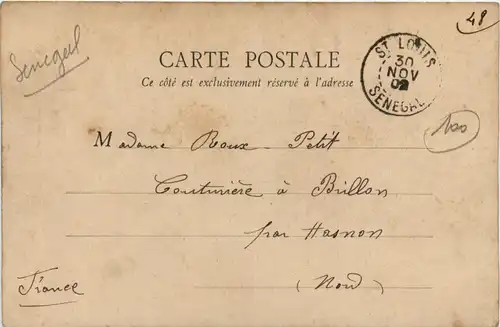 Senegal
48
CARTE POSTALE
Ce côté est exclusivement réservé à l'adresse
ST LOUIS
30
NOV
02
SENEGAL
100
Madame Roux - Petit
Couturière à Brillon
par Hasnon
(Nord)
France